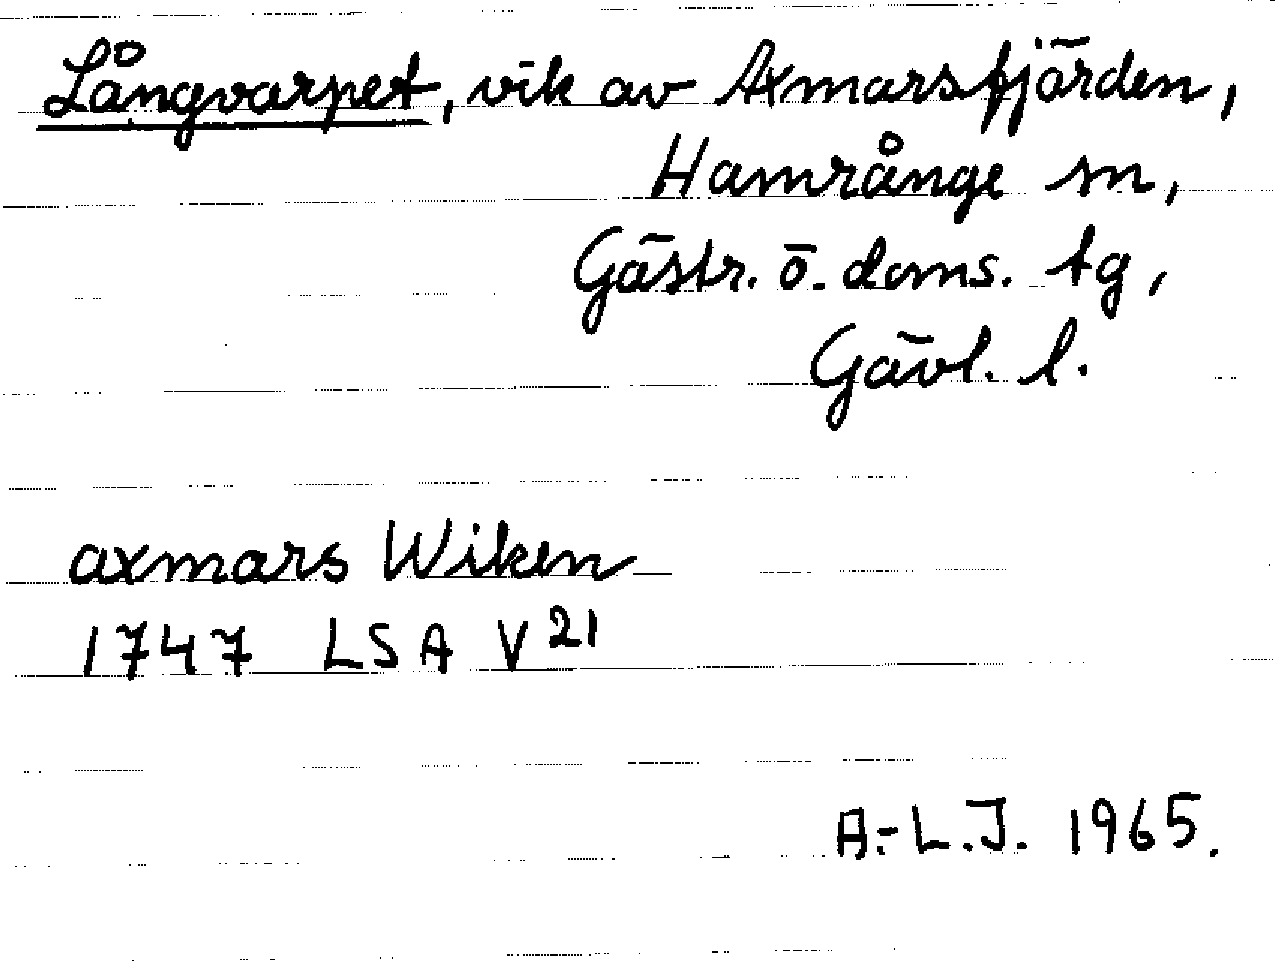 Långvarpet, vik av Axmarsfjärden,
Hamrånge sn,
Gästr. ö. doms. tg,
Gävl. l.
axmars Wiken
1747 LSA V 21
A.-L.J. 1965.